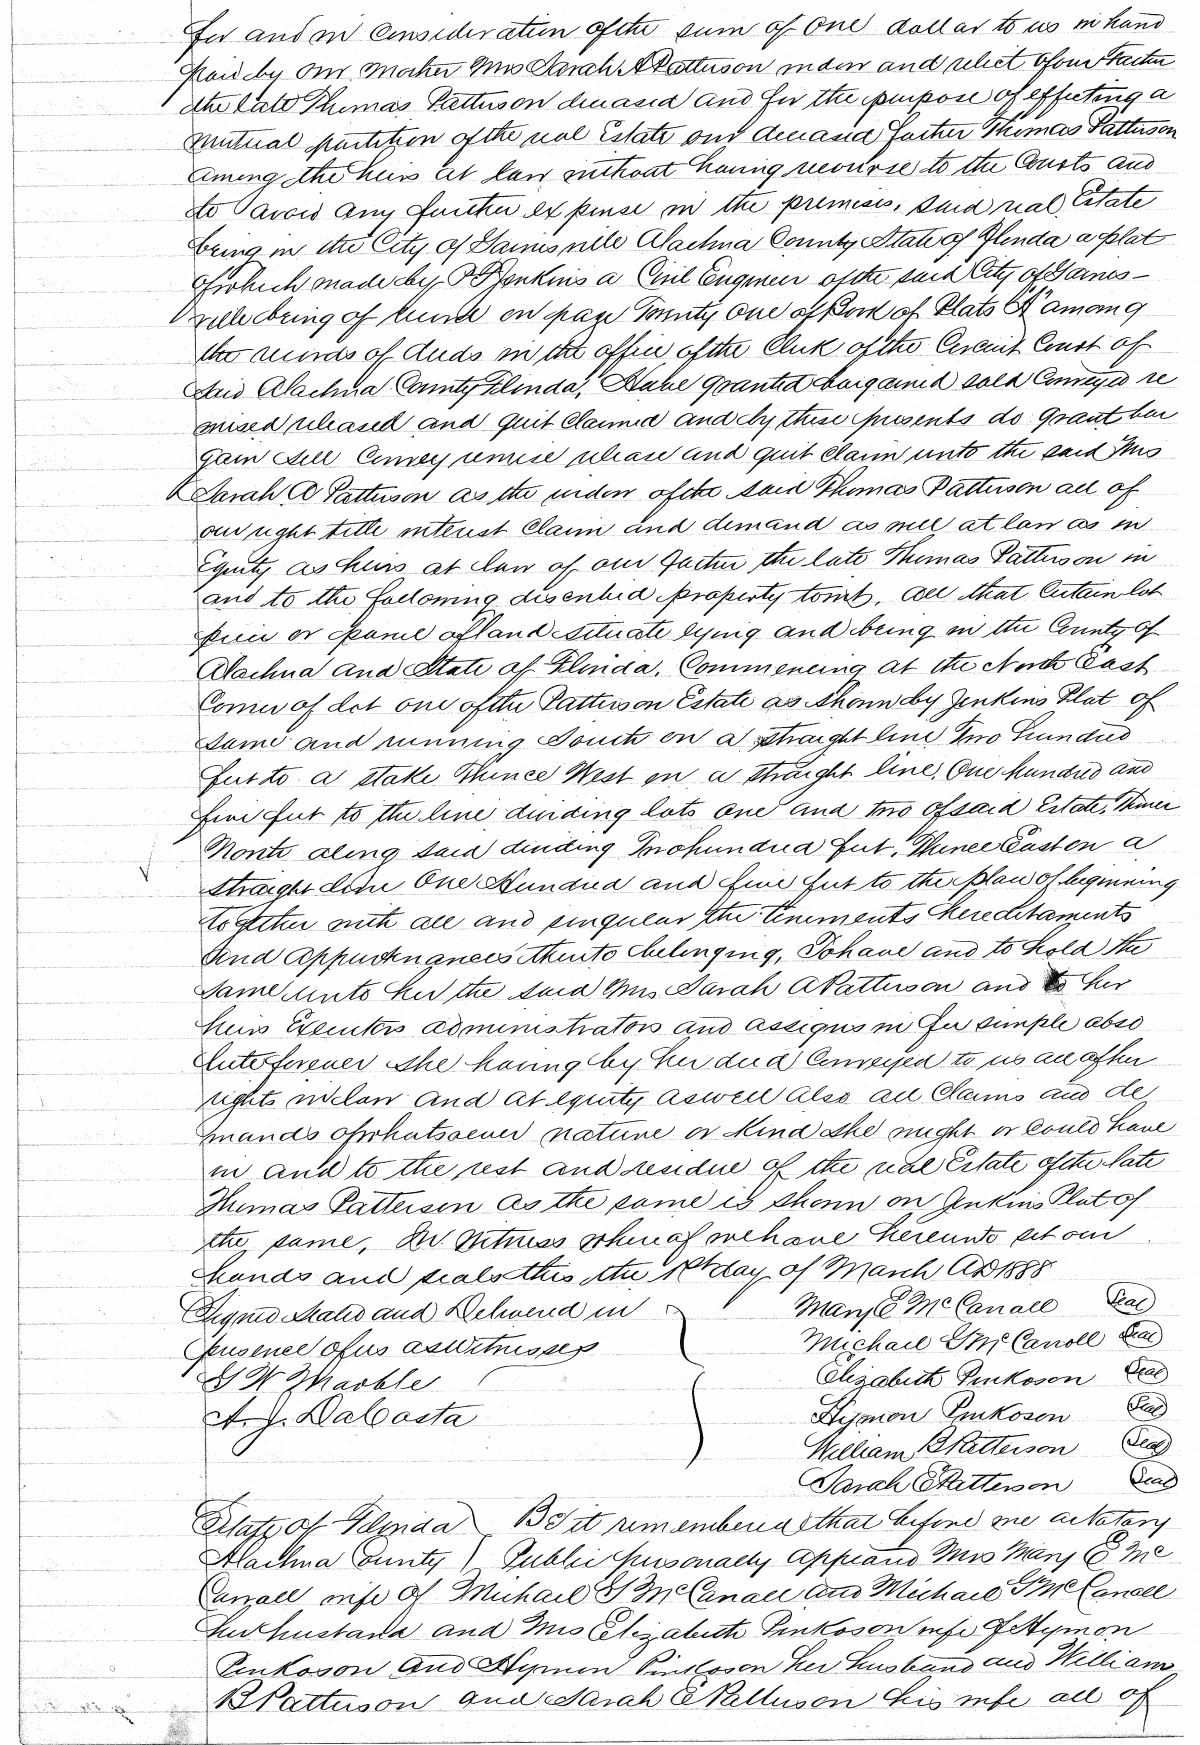 for and in consideration of the sum of one dollar to us in hand
paid by our mother Mrs Sarah A Patterson widow and relict of our Father
the late Thomas Patterson deceased and for the purpose of effecting a
mutual partition of the real Estate our deceased father Thomas Patterson
among the heirs at law without having recourse to the Courts and
to avoid any further expense in the premises, said real Estate
being in the City of Gainesville Alachua County State of Florida a plat
of which made by P Jenkins a Civil Engineer of the said City of Gaines-
ville being of record on page Twenty One of Book of Plats "A" among
the records of deeds in the office of the Clerk of the Circuit Court of
said Alachua County Florida, Have granted bargained sold Conveyed re
mised released and quit claimed and by these presents do grant bar
gain sell Convey remise release and quit claim unto the said Mrs
Sarah A Patterson as the widow of the said Thomas Patterson all of
our right title interest Claim and demand as well at law as in
Equity as heirs at law of our father the late Thomas Patterson in
and to the following described property towit. All that Certain lot
piece or parcel of land situate lying and being in the County of
Alachua and State of Florida. Commencing at the North East
Corner of Lot one of the Patterson Estate as shown by Jenkins Plat of
same and running South on a straight line Two hundred
feet to a stake Thence West on a straight line One hundred and
five feet to the line dividing lots one and two of said Estate, Thence
North along said dividing Two hundred feet, Thence East on a
straight line One Hundred and five feet to the place of beginning
together with all and singular the tenements hereditaments
and appurtenances thereto belonging, To have and to hold the
same unto her the said Mrs Sarah A Patterson and to her
heirs Executors administrators and assigns in fee simple abso
lute forever she having by her deed Conveyed to us all of her
rights in law and at equity as well also all Claims and de
mands of whatsoever nature or kind she might or could have
in and to the rest and residue of the real Estate of the late
Thomas Patterson as the same is shown on Jenkins Plat of
the same, In Witness whereof we have hereunto set our
hands and seals this the 1st day of March AD 1888
Signed Sealed and Delivered in Mary E McCarroll Seal
presence of us as Witnesses Michael G McCarroll Seal
G W Marble Elizabeth Pinkoson Seal
A. J. DaCosta Hymon Pinkoson Seal
William B Patterson Seal
Sarah E Patterson Seal
State of Florida ) Be it remembered that before me a Notary
Alachua County ) Public personally appeared Mrs Mary E Mc
Carroll wife of Michael G McCarroll and Michael G McCarroll
her husband and Mrs Elizabeth Pinkoson wife of Hymon
Pinkoson and Hymon Pinkoson her husband and William
B Patterson and Sarah E Patterson his wife all of